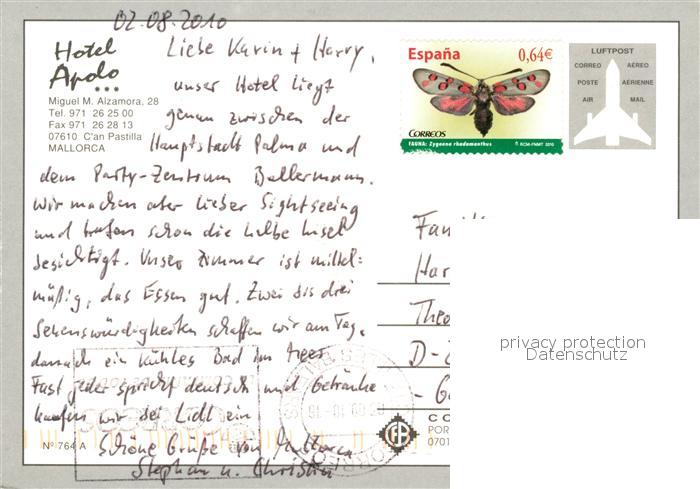 02.08.2010
Hotel
Apolo
Miguel M. Alzamora, 28
Tel. 971 26 25 00
Fax 971 26 28 13
07610 C'an Pastilla
MALLORCA
Liebe Karin + Harry,
unser Hotel liegt
genau zwischen der
Hauptstadt Palma und
dem Party-Zentrum Ballermann.
Wir machen aber lieber Sightseeing
und haben schon die halbe Insel
besichtigt. Unser Zimmer ist mittel-
mäßig, das Essen gut. Zwei bis drei
Sehenswürdigkeiten schaffen wir am Tag,
danach ein kühles Bad im Meer
Fast jeder spricht deutsch und Getränke
kaufen wir bei Lidl ein
Schöne Grüße von Mallorca
Stephan u. Christin
Nº 764 A
España 0,64€
CORREOS
FAUNA: Zygaena rhadamanthus
RCM-FNMT 2010
LUFTPOST
CORREO AÉREO
POSTE AÉRIENNE
AIR MAIL
Fam
Har
Theo
D-
privacy protection
Datenschutz
CO
POR
0701